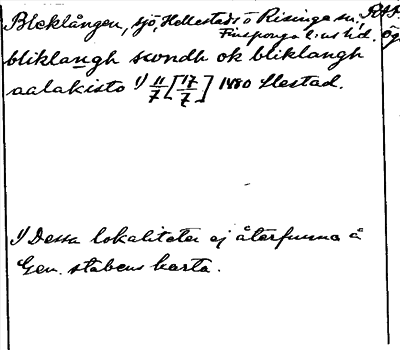 Bleklången, sjö, Hellestads o Risinge sn, RAP.
Finspånga läns hd. Ög
bliklangh swndh ok bliklangh
aalakisto 1) 11/7 [17/7] 1480 Llestad.
1) Dessa lokaliteter ej återfunna å
Gen. stabens karta.